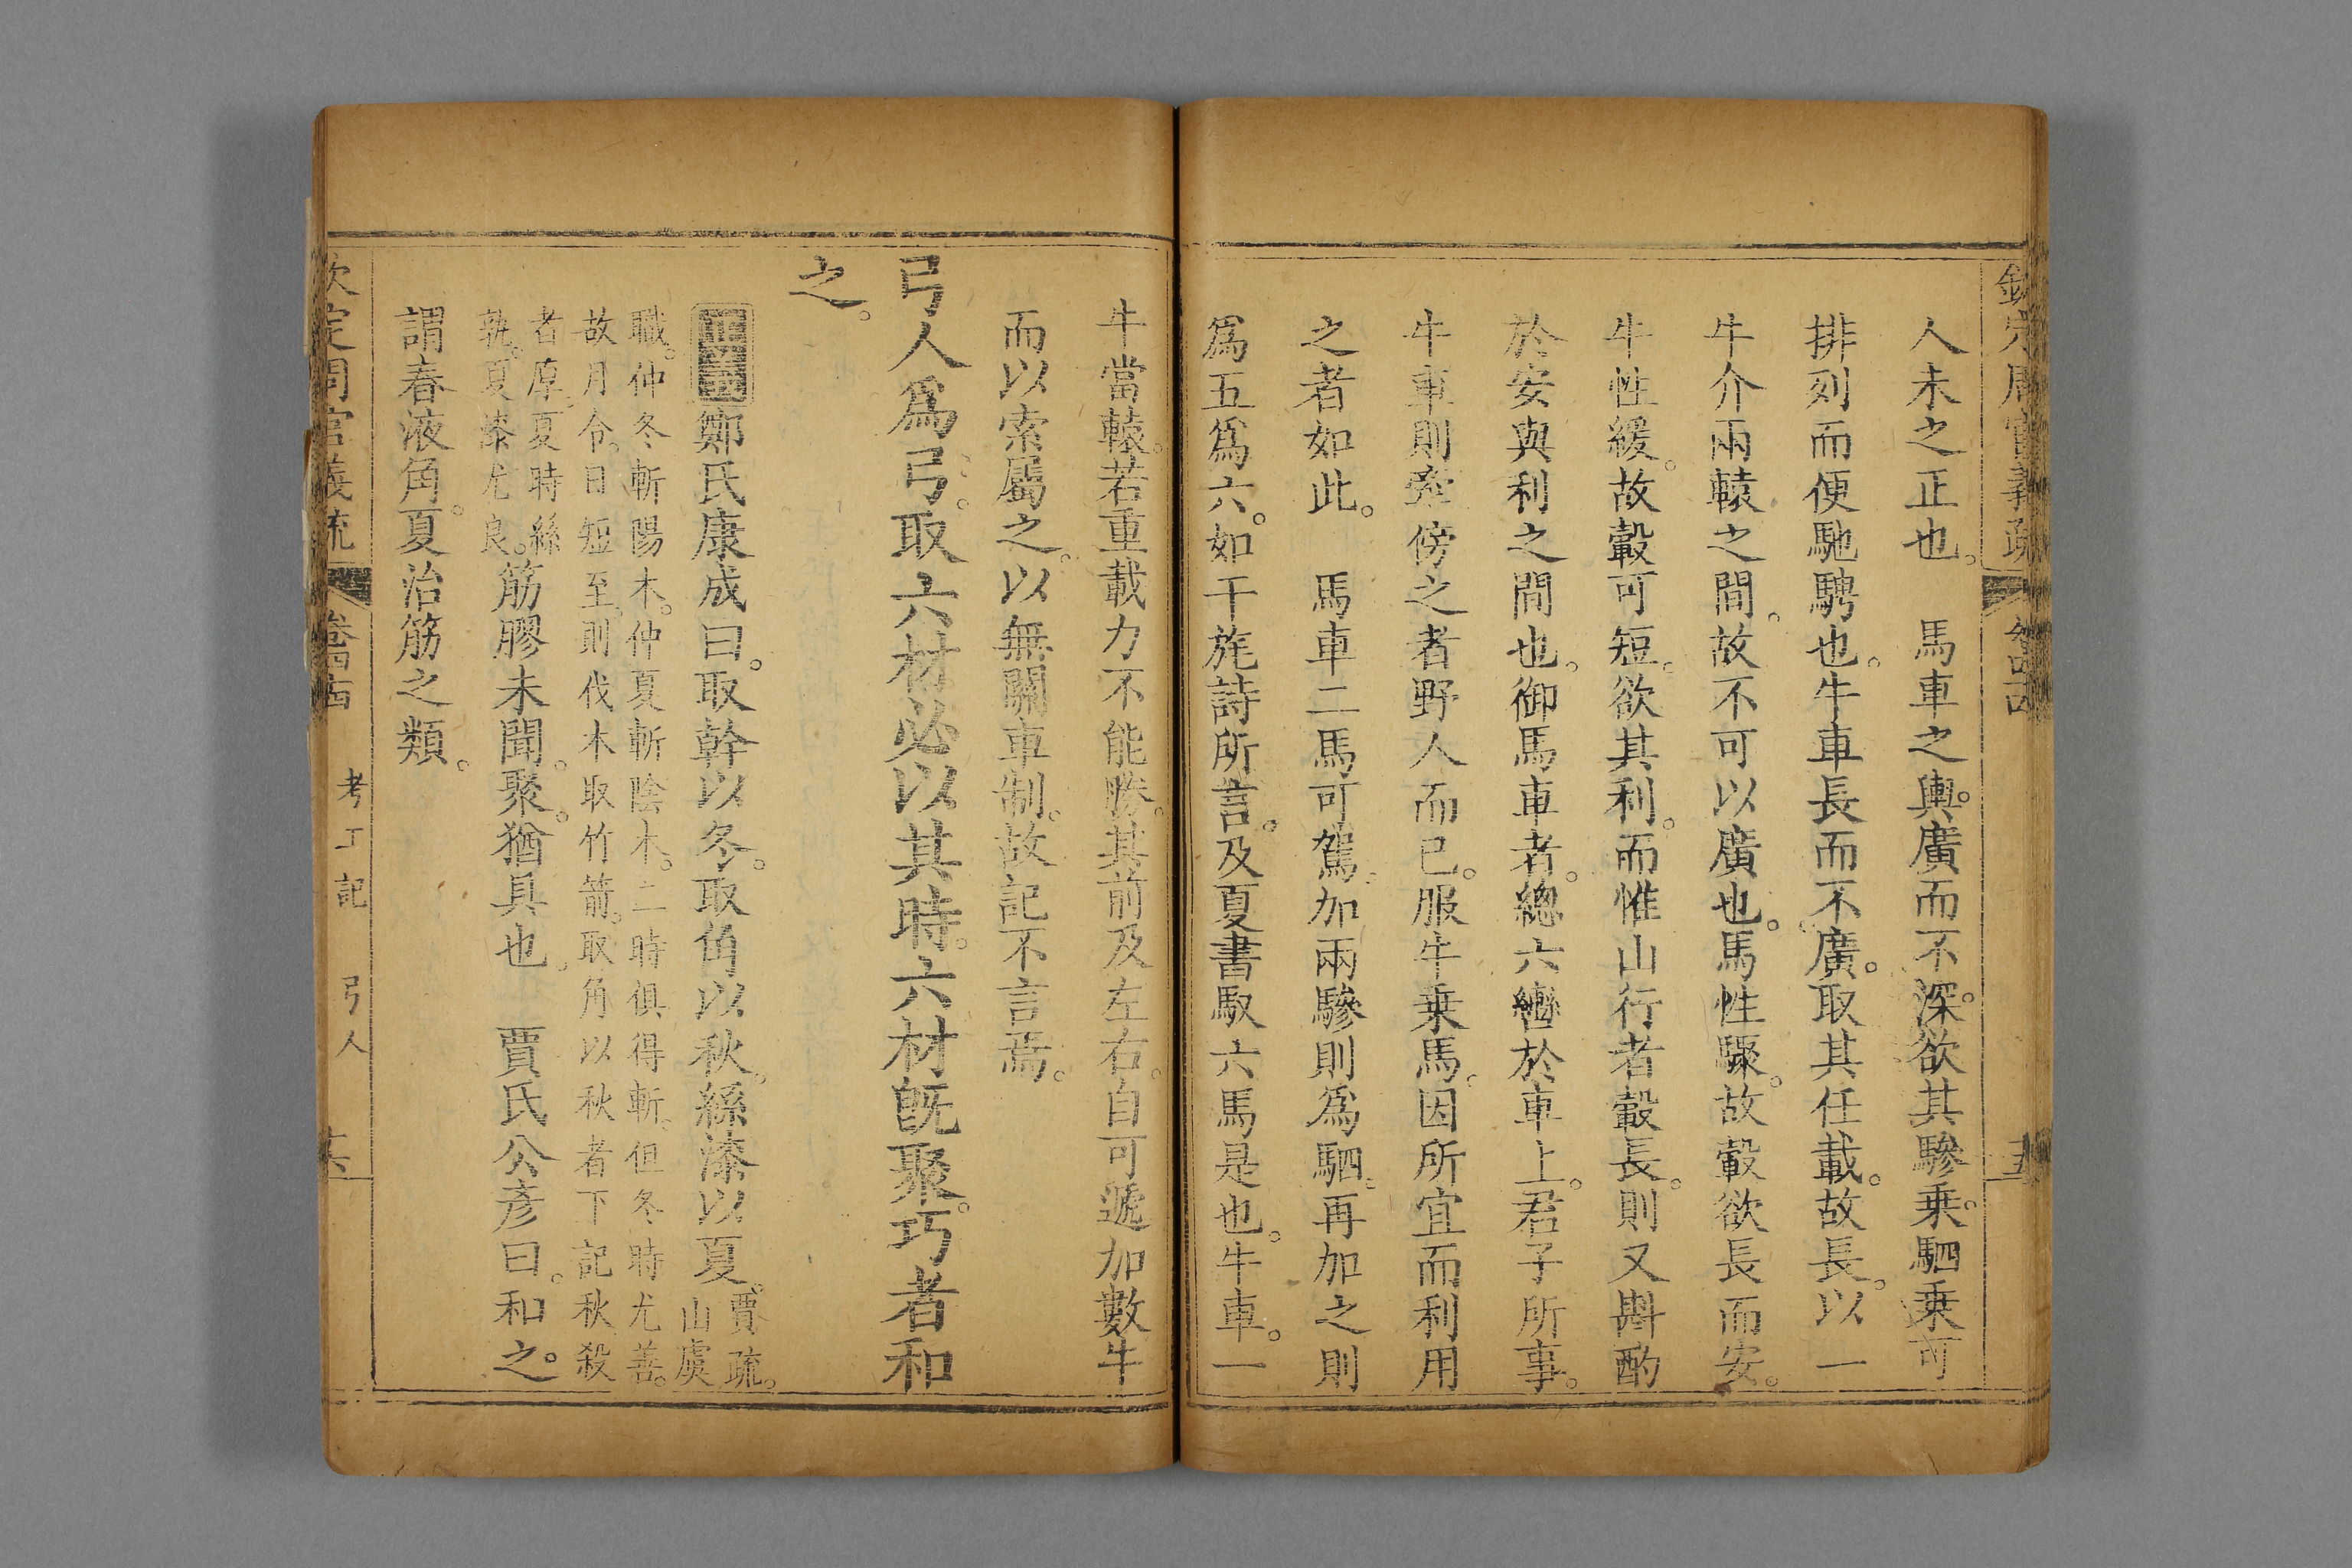 欽定周官義疏 卷四十四
人未之正也。 馬車之輿。廣而不深。欲其驂乗。駟乗可
排列而便馳騁也。牛車長而不廣。取其任載。故長。以一
牛介兩轅之間。故不可以廣也。馬性驟。故轂欲長而安。
牛性緩。故轂可短。欲其利。而惟山行者轂長。則又斟酌
於安與利之間也。御馬車者。總六轡於車上。君子所事。
牛車則牽傍之者野人而已。服牛乗馬。因所宜而利用
之者如此。 馬車二馬可駕。加兩驂則爲駟。再加之則
爲五爲六。如干旄詩所言。及夏書馭六馬是也。牛車。一
牛當轅。若重載力不能勝。其前及左右。自可遞加數牛
而以索屬之。以無關車制。故記不言焉。
弓人爲弓。取六材必以其時。六材旣聚。巧者和
之。
正義鄭氏康成曰。取幹以冬。取角以秋。絲漆以夏。賈疏。
山虞
職。仲冬斬陽木。仲夏斬陰木。二時俱得斬。但冬時尤善。
故月令。日短至。則伐木取竹箭。取角以秋者下記秋殺
者厚。夏時絲
孰。夏漆尤良。筋膠未聞。聚。猶具也。 賈氏公彥曰。和之。
謂春液角。夏治筋之類。
欽定周官義疏 卷四十四 考工記 弓人